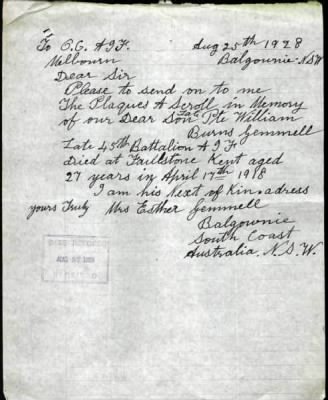 To O.C. A.I.F. Aug 25th 1928
Melbourn Balgownie. N.S.W
Dear Sir
Please to send on to me
The Plaques & Scroll in Memory
of our Dear Son Late Pte William
Burns Gemmell
Late 45th Battalion A I F
died at Faulstone Kent aged
27 years in April 17th 1918
I am his Next of Kin adress
yours Truly Mrs Esther Gemmell
Balgownie
South Coast
Australia. N.S.W.